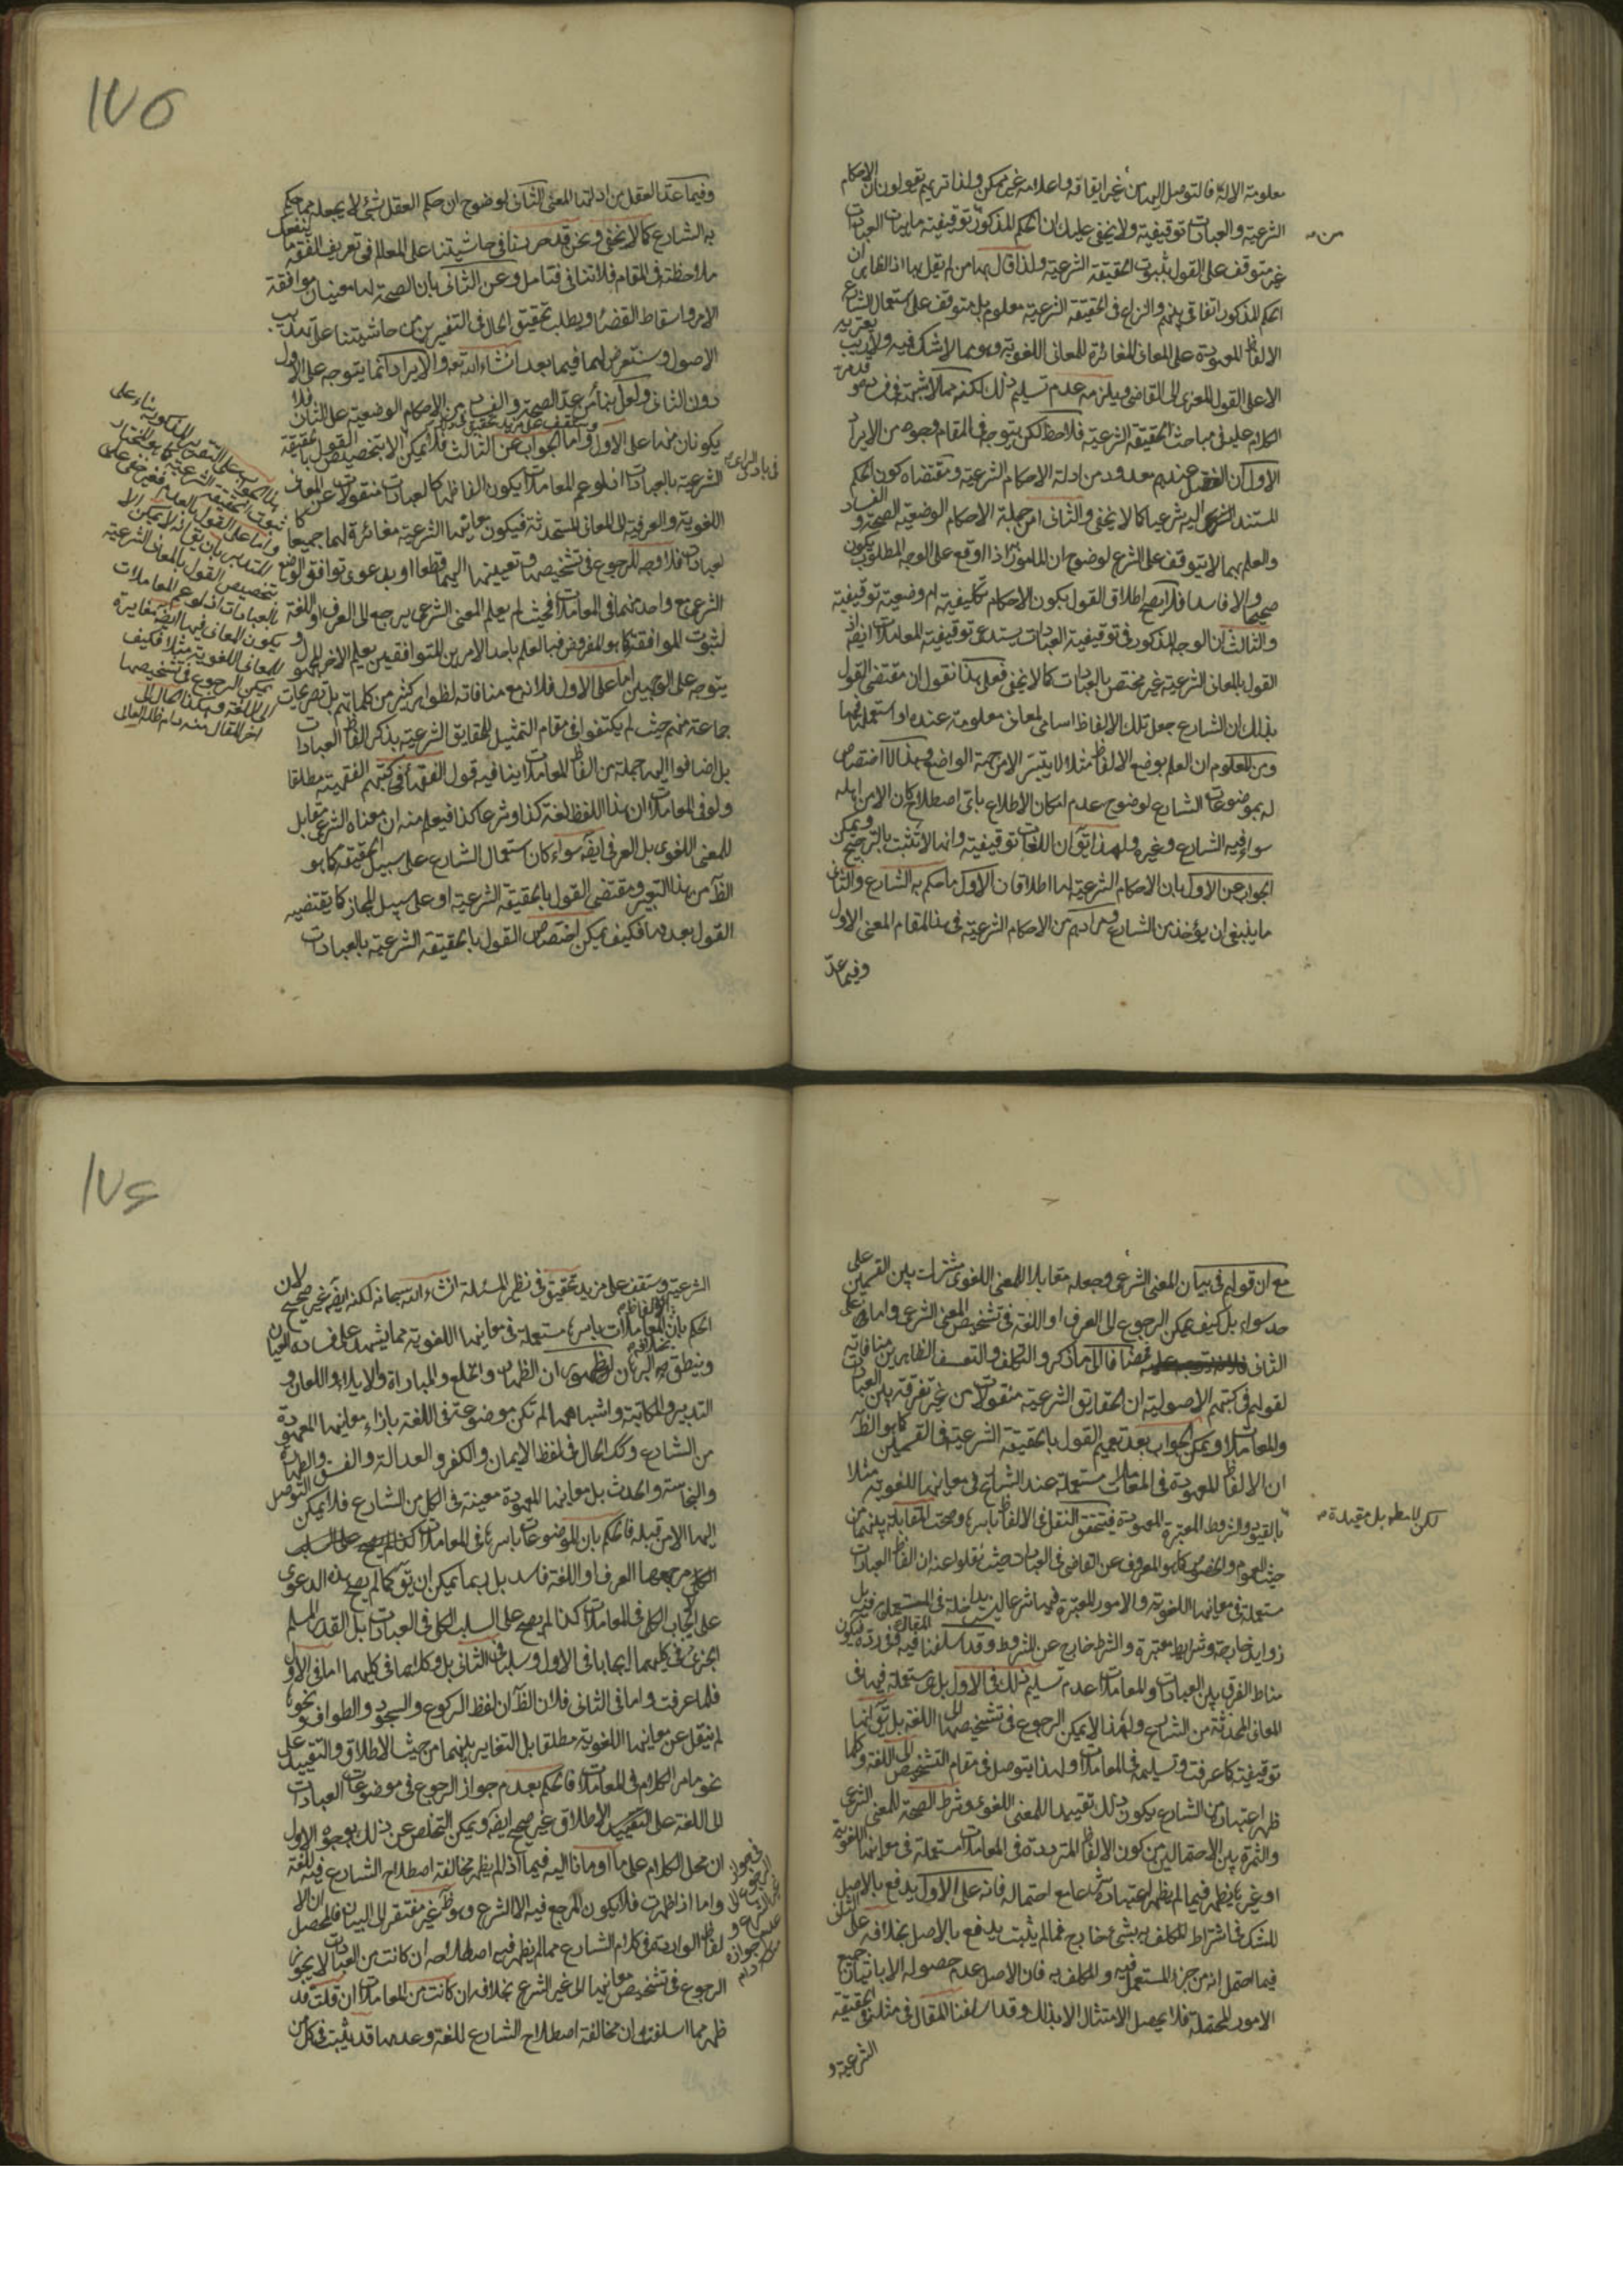 معلومة الا له فالتوصل اليها من غير ايقافه واعلامه غير ممكن ولذا تريهم يقولون ان الاحكام
الشرعية والعبادات توقيفية ولا يخفى عليك ان الحكم المذكور بتوقيفية ماهيات العبادات
غير متوقف على القول بثبوت الحقيقة الشرعية ولذا قال بها من لم يقل بها اذ الظاهر ان
الحكم المذكور اتفاقي بينهم والنزاع في الحقيقة الشرعية معلوم بل متوقف على استعمال الشارع
الالفاظ المعهودة على المعاني المغائرة للمعاني اللغوية وهو مما لا شك فيه ولا ريب يعتريه
الا على القول المعزى الى القاضي فيلزمه عدم تسليم ذلك لكنه مما لا شبهة في فساده وقد مر
الكلام عليه في مباحث الحقيقة الشرعية فلاحظ لكن يتوجه في المقام وجوه من الايراد
الاول ان العقل عندهم معدود من ادلة الاحكام الشرعية ومقتضاه كون الحكم
المستند اليه شرعيا كما لا يخفى والثاني ان من جملة الاحكام الوضعية الصحة والفساد
والعلم بهما لا يتوقف على الشرع لوضوح ان المامور به اذا اوقع على الوجه المطلوب يكون
صحيحا والا فاسدا فلا يصح اطلاق القول بكون الاحكام تكليفية ام وضعية توقيفية
والثالث ان الوجه المذكور في توقيفية العبادات يستدعي توقيفية المعاملات ايضا اذ
القول بالمعاني الشرعية غير مختص بالعبادات كما لا يخفى فعلى هذا نقول ان مقتضى القول
بذلك ان الشارع جعل تلك الالفاظ اسامي لمعاني معلومة عنده او استعملها فيها
ومن المعلوم ان العلم بوضع الالفاظ مثلا لا يتيسر الا من جهة الواضع وهذا لا اختصاص
له بموضوعات الشارع لوضوح عدم امكان الاطلاع باي اصطلاح كان الا من اهله
سواء فيه الشارع وغيره ولهذا يق ان اللغات توقيفية وانها لا تثبت بالترجيح ويمكن
الجواب عن الاول بان الاحكام الشرعية لها اطلاقان الاول ما حكم به الشارع والثاني
ما ينبغي ان يؤخذ من الشارع ومرادهم من الاحكام الشرعية في هذا المقام المعنى الاول
وفيما عد
١٧٥
وفيما عد العقل من ادلتها المعنى الثاني لوضوح ان حكم العقل بشيء لا يجعله مما حكم
به الشارع كما لا يخفى ونحن قد حررنا في حاشيتنا على المعالم في تعريف الفقه ما ينفعك
ملاحظته في المقام فلا تنافي فتامل وعن الثاني بان الصحة لها معنيان موافقة
الامر واسقاط القضاء ويطلب تحقيق الحال في التفسيرين من حاشيتنا على تهذيب
الاصول وسنتعرض لهما فيما بعد انشاء الله تعه والايراد انما يتوجه على الاول
دون الثاني ولعل بناء من عد الصحة والفساد من الاحكام الوضعية على الثاني فلا
يكونان منها على الاول واما الجواب عن الثالث فلا يمكن الا بتخصيص القول بالحقيقة
الشرعية بالعبادات اذ لو عم المعاملات يكون الفاظها كالعبادات منقولات عن المعاني
اللغوية والعرفية الى المعاني المستحدثة فيكون معانيها الشرعية مغائرة لهما جميعا كا
لعبادات فلا وجه للرجوع في تشخيصها وتعيينها اليهما قطعا او بدعوى توافق الوضع
الشرعي مع واحد منهما في المعاملات فحيث لم يعلم المعنى الشرعي يرجع الى العرف او اللغة
لثبوت الموافقة كما هو المفروض فبالعلم باحد الامرين المتوافقين يعلم الاخر لكن
يتوجه على الوجهين اما على الاول فلانه مع منافاته لظواهر كثير من كلماتهم بل تصريحات
جماعة منهم حيث لم يكتفوا في مقام التمثيل للحقايق الشرعية بذكر الفاظ العبادات
بل اضافوا اليها جملة من الفاظ المعاملات ينافيه قول الفقهاء في كتبهم الفقهية مطلقا
ولو في المعاملات ان هذا اللفظ لغة كذا وشرعا كذا فيعلم منه ان معناه الشرعي مقابل
للمعنى اللغوي بل العرفي ايضا سواء كان استعمال الشارع على سبيل الحقيقة كما هو
الظاهر من هذا التعبير ومقتضى القول بالحقيقة الشرعية او على سبيل المجاز كما يقتضيه
القول بعدمها فكيف يمكن اختصاص القول بالحقيقة الشرعية بالعبادات
ثبوت الحقيقة الشرعية كما هو المختار
واما على القول بالعدم فغير خفى على
المتدبر بان يق اذ لا يمكن الا
تخصيص القول بالمعاني الشرعية
بالعبادات اذ لو عم المعاملات
يكون المعاني فيها ايضا مغايرة
للمعاني اللغوية مثلا فكيف
يمكن الرجوع في تشخيصها
الى اللغة وهكذا الحال الى
اخر المقال منه دام ظله العالى
مع ان قولهم في بيان المعنى الشرعي وجعله مقابلا للمعنى اللغوي مشترك بين القسمين على
حد سواء بل كيف يمكن الرجوع الى العرف او اللغة في تشخيص المعنى الشرعي واما على
الثاني فمضافا الى ما ذكر والتكلف والتعسف الظاهرين منافاته
لقولهم في كتبهم الاصولية ان الحقايق الشرعية منقولات من غير تفرقة بين العبادات
والمعاملات ويمكن الجواب بعد تعميم القول بالحقيقة الشرعية في القسمين كما هو الظاهر
ان الالفاظ المعهودة في المعاملات مستعملة عند الشارع في معانيها اللغوية مثلا
لكن لا مطلقه بل مقيدة
بالقيود والشروط المعتبرة المعهودة فيتحقق النقل في الالفاظ باسرها وصحت المقابلة بينهما من
حيث العموم والخصوص كما هو المعروف عن القاضي في العبادات حيث نقلوا عنه ان الفاظ العبادات
مستعملة في معانيها اللغوية والامور المعتبرة فيها شرعا ليست داخلة في المستعمل فيه بل
زوايد خارجة وشرايط معتبرة والشرط خارج عن المشروط وقد اسلفنا المقال فيه وفي رده فيكون
مناط الفرق بين العبادات والمعاملات عدم تسليم ذلك في الاول بل هي مستعملة فيها في
المعاني المحدثة من الشارع ولهذا لا يمكن الرجوع في تشخيصها الى اللغة بل يق انها
توقيفية كما عرفت وتسليمه في المعاملات ولهذا يتوصل في مقام التشخيص الى اللغة وكلما
ظهر اعتباره من الشارع يكون ذلك تقييدا للمعنى اللغوي وشرط الصحة للمعنى الشرعي
والثمرة بين الاحتمالين من كون الالفاظ المترددة في المعاملات مستعملة في معانيها اللغوية
او غيرها يظهر فيما لم يظهر اعتباره شرعا مع احتماله فانه على الاول يدفع بالاصل
للشك في اشتراط المكلف به بشيء خارج فما لم يثبت يدفع بالاصل بخلافه على الثاني
فيما احتمل انه من جزء المستعمل فيه والمكلف به فان الاصل عدم حصوله الا باتيان جميع
الامور المحتملة فلا يحصل الامتثال الا بذلك وقد اسلفنا المقال في مثله في الحقيقة
الشرعية و
١٧٦
الشرعية وستقف على مزيد تحقيق في نظير المسئلة انشاء الله سبحانه لكنه ايضا غير صحيح لان
الحكم بان الفاظ المعاملات باسرها مستعملة في معانيها اللغوية مما يشهد على فساده العيان
وينطق بخلافه البرهان لظهور ان الظهار والخلع والمباراة والايلاء واللعان و
التدبير والمكاتبة واشباهها لم تكن موضوعة في اللغة بازاء معانيها المعهودة
من الشارع وكك الحال في لفظ الايمان والكفر والعدالة والفسق والطهارة
والنجاسة والحدث بل معانيها المعهودة معينة في الكل من الشارع فلا يمكن التوصل
اليها الا من قبله فالحكم بان الموضوعات باسرها في المعاملات
مرجعها العرف او اللغة فاسد بل ربما يمكن ان يق كما لم يصح هذه الدعوى
على الايجاب الكلي في المعاملات كذا لم يصح على السلب الكلي في العبادات بل القدر المسلم
الجزئي في كليهما ايجابا في الاول وسلبا في الثاني بل وكلاهما في كليهما اما في الاول
فلما عرفت واما في الثاني فلان الظاهر ان لفظ الركوع والسجود والطواف ونحوها
لم ينقل عن معانيها اللغوية مطلقا بل التغاير بينهما من حيث الاطلاق والتقييد على
نحو ما مر الكلام في المعاملات فالحكم بعدم جواز الرجوع في موضوعات العبادات
الى اللغة على الاطلاق غير صحيح ايضا ويمكن التخلص عن ذلك بوجوه الاول
ان محل الكلام على ما اومانا اليه فيما اذا لم يظهر مخالفة اصطلاح الشارع فيه للغة
واما اذا ظهرت فلا يكون المرجع فيه الا الشرع وهو ظاهر غير مفتقر الى البيان فالمحصل ان الا
لفاظ الواردة في كلام الشارع مما لم يظهر فيه اصطلاحه ان كانت من العبادات لا يجوز
الرجوع في تشخيص معانيها الى غير الشرع بخلافه ان كانت من المعاملات ان قلت قد
ظهر مما اسلفت ان مخالفة اصطلاح الشارع للغة وعدمها قد يثبت في كل من